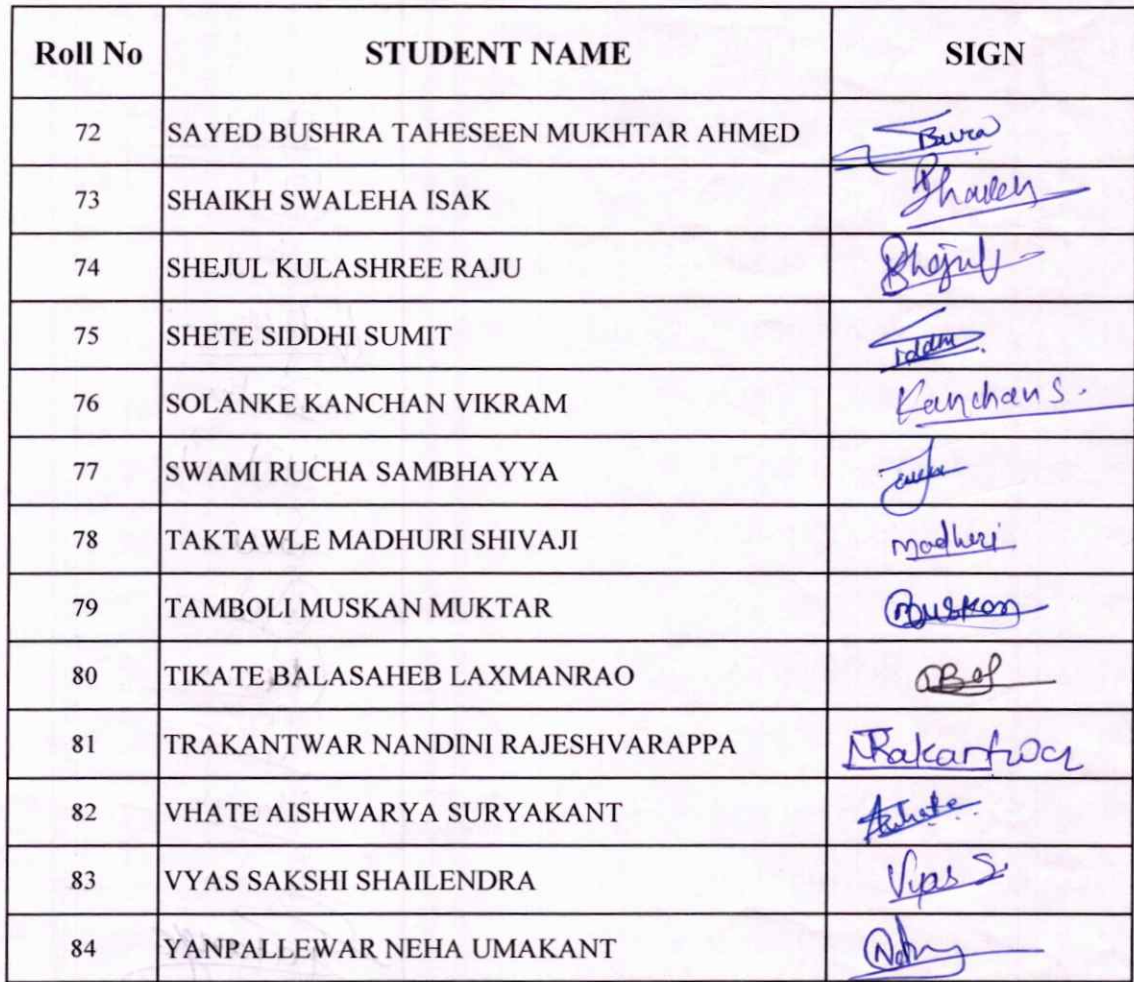 Roll No STUDENT NAME SIGN
72 SAYED BUSHRA TAHESEEN MUKHTAR AHMED
73 SHAIKH SWALEHA ISAK
74 SHEJUL KULASHREE RAJU Shejul
75 SHETE SIDDHI SUMIT
76 SOLANKE KANCHAN VIKRAM Kanchan S.
77 SWAMI RUCHA SAMBHAYYA
78 TAKTAWLE MADHURI SHIVAJI madhuri
79 TAMBOLI MUSKAN MUKTAR Muskan
80 TIKATE BALASAHEB LAXMANRAO
81 TRAKANTWAR NANDINI RAJESHVARAPPA
82 VHATE AISHWARYA SURYAKANT
83 VYAS SAKSHI SHAILENDRA Vyas S.
84 YANPALLEWAR NEHA UMAKANT